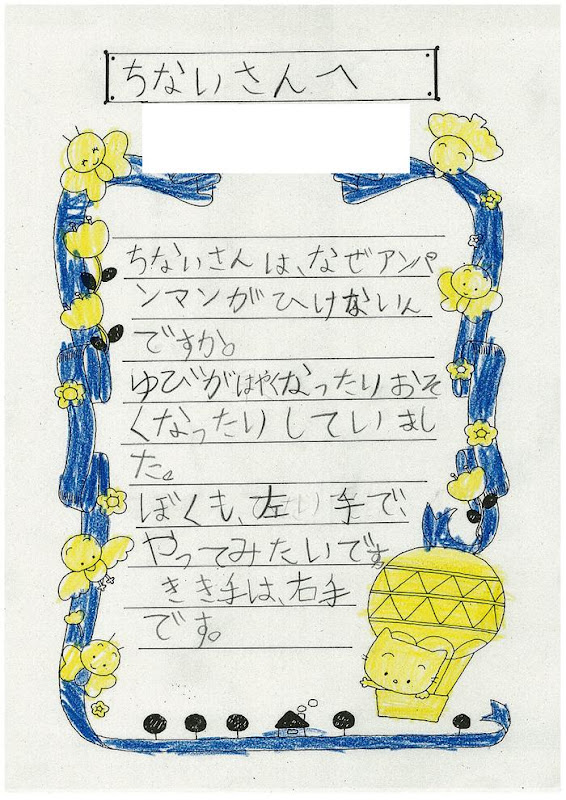 ちないさんへ
ちないさんは、なぜアンパ
ンマンがひけないん
ですか。
ゆびがはやくなったりおそ
くなったりしていまし
た。
ぼくも、左手で、
やってみたいです。
きき手は、右手
です。